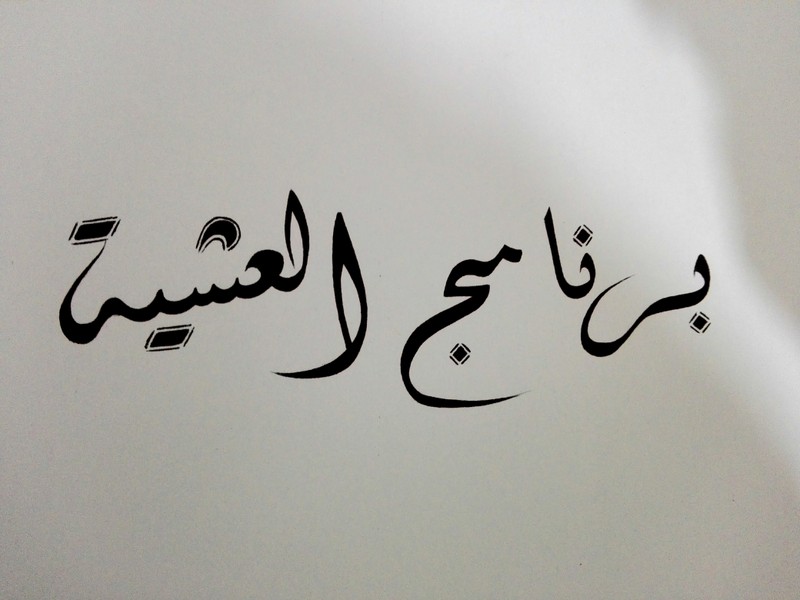 برنامج العشية